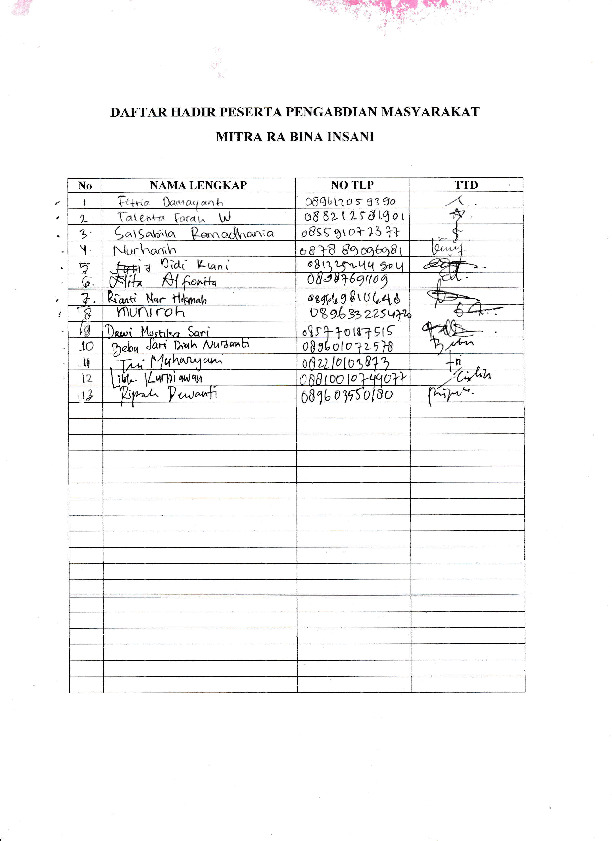 DAFTAR HADIR PESERTA PENGABDIAN MASYARAKAT
MITRA RA BINA INSANI
No NAMA LENGKAP NO TLP TTD
1 Fitria Damayanti 089612059390
2 Talenta Farah W 088212581901
3 Salsabila Ramadhania 085591072377
4 Nurhanih 087889096981
5 Didi Riani 081325244504
6 Alita Alfonita 08987691109
7. Rianti Nur Hikmah 089669810648
8 MUNIROH 0896332254720
9 Dewi Mustika Sari 085770187515
10 Zebu Sari Diah Nurianti 089601072578
11 Tari Maharyani 082210103873
12 Kurniawan 0881001074907
13 Dewanti 089603550180